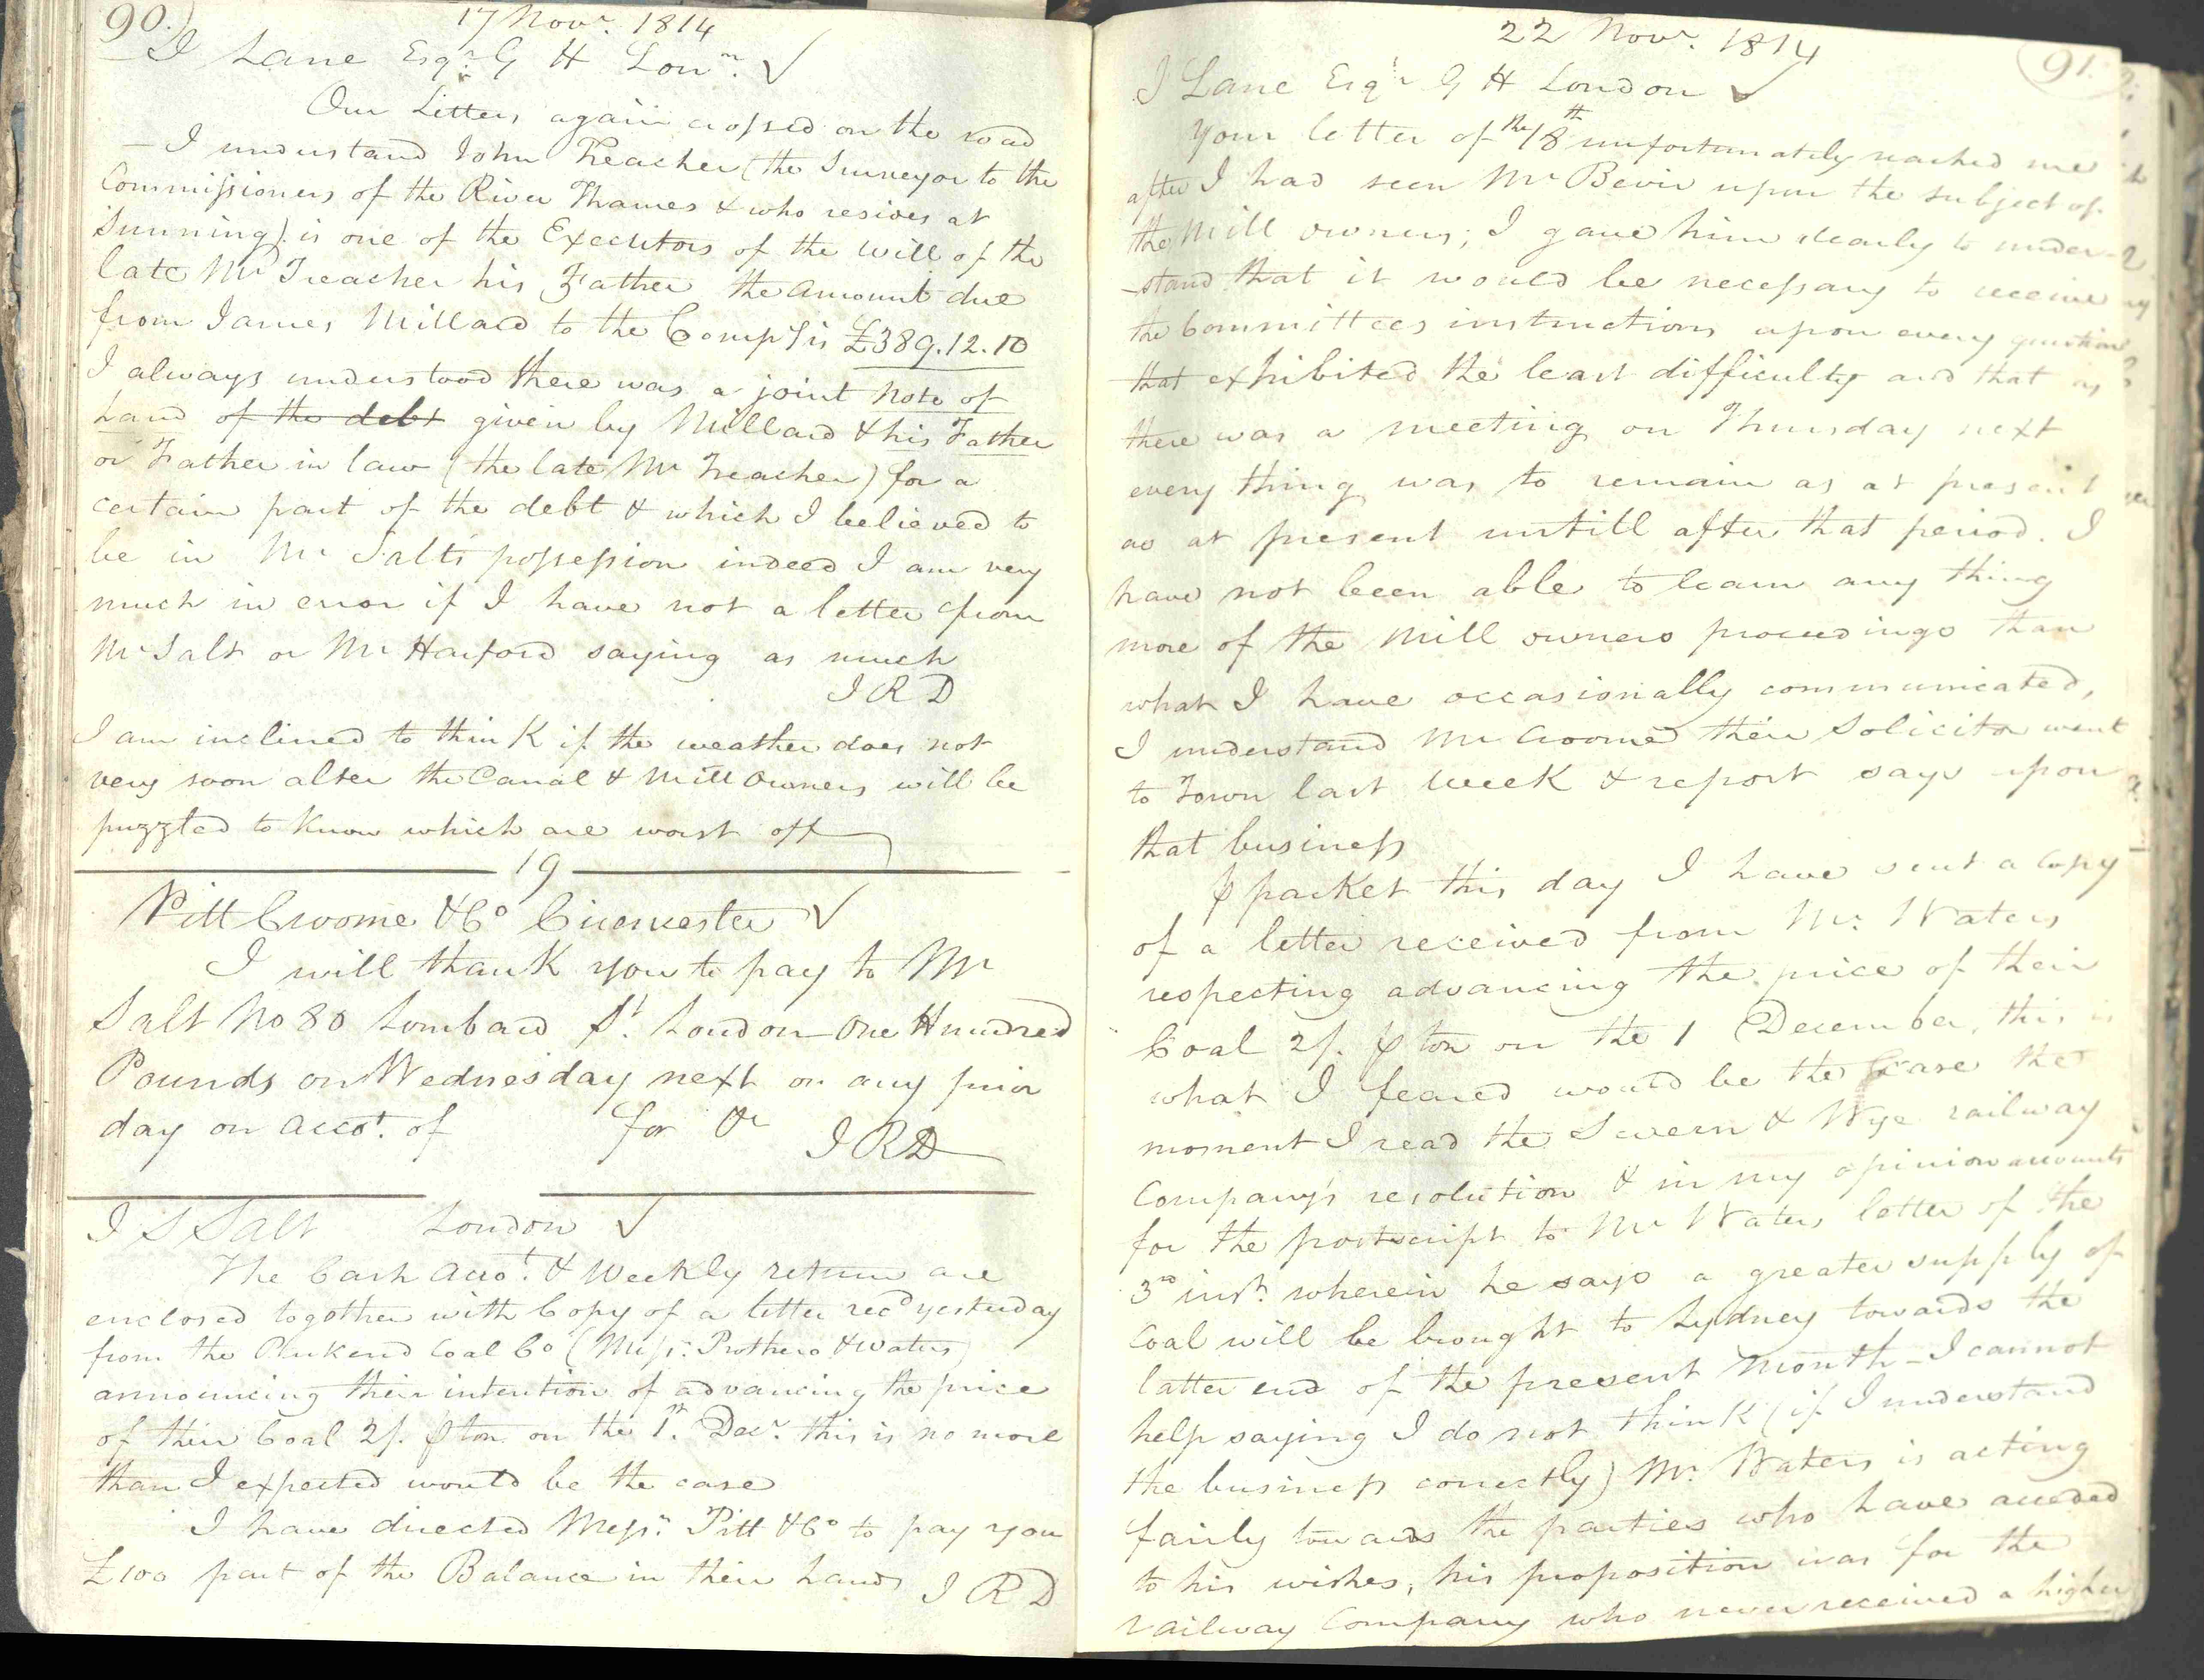 90.)
17 Novr. 1814
I Lane Esqr. G H Lonn. ✓
Our Letters again crossed on the road
— I understand John Treacher (the Surveyor to the
Commissioners of the River Thames & who resives at
Sunning) is one of the Executors of the Will of the
late Mr Treacher his Father the amount due
from James Millard to the Compy is £389.12.10
I always understood there was a joint note of
hand of the debt given by Millard & his Father
or Father in law (the late Mr Treacher) for a
certain part of the debt & which I believed to
be in Mr Salt's possession indeed I am very
much in error if I have not a letter from
Mr Salt or Mr Harford saying as much
I R D
I am inclined to think if the weather does not
very soon alter the Canal & Mill Owners will be
puzzled to know which are worst off
19
Pitt Croome & Co Cirencester ✓
I will thank you to pay to Mr
Salt No 80 Lombard St. London One Hundred
Pounds on Wednesday next or any prior
day on accot. of for &c
I R D
I S Salt London ✓
The Cash Accot. & Weekly return are
enclosed together with Copy of a letter recd yesterday
from the Parkend Coal Co (Messrs. Prothero & Waters)
announcing their intention of advancing the price
of their Coal 2/. ⅌ ton on the 1st. Decr. this is no more
than I expected would be the case
I have directed Messrs. Pitt & Co to pay you
£100 part of the Balance in their hands I R D
22 Novr. 1814
91.
I Lane Esqr G H London ✓
Your letter of the 18th unfortunately reached me
after I had seen Mr Bevir upon the subject of
the Mill owners; I gave him clearly to under-
-stand that it would be necessary to receive
the Committees instructions upon every question
that exhibited the least difficulty and that as
there was a meeting on Thursday next
every thing was to remain as at present
as at present untill after that period. I
have not been able to learn any thing
more of the Mill owners proceedings than
what I have occasionally communicated,
I understand Mr Croome their Solicitor went
to Town last Week & report says upon
that business
⅌ packet this day I have sent a Copy
of a letter received from Mr. Waters
respecting advancing the price of their
Coal 2/. ⅌ ton on the 1 December, this is
what I feared would be the case the
moment I read the Severn & Wye railway
Company's resolution & in my opinion accounts
for the postscript to Mr Waters letter of the
3rd inst. wherein he says a greater supply of
Coal will be brought to Lydney towards the
latter end of the present month — I cannot
help saying I do not think (if I understand
the business correctly) Mr. Waters is acting
fairly towards the parties who have acceded
to his wishes, his proposition was for the
railway Company who never received a higher